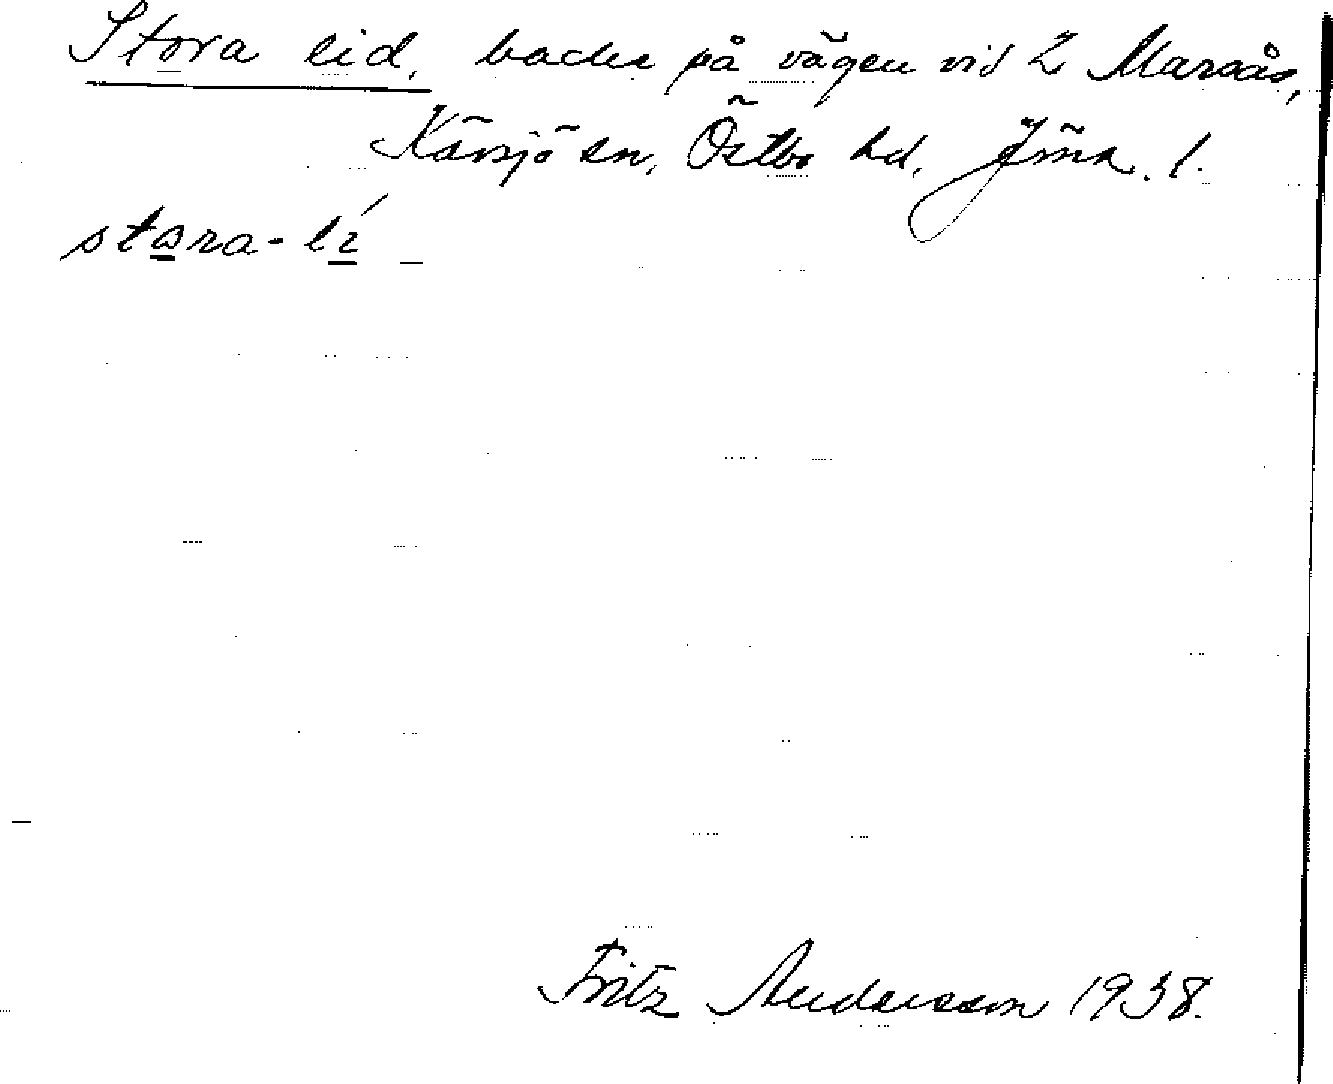 Stora lid, backe på vägen vid 2 Marsås,
Kävsjö sn, Östbo hd, Jönk. l.
stora-lí
Fritz Andersson 1938.